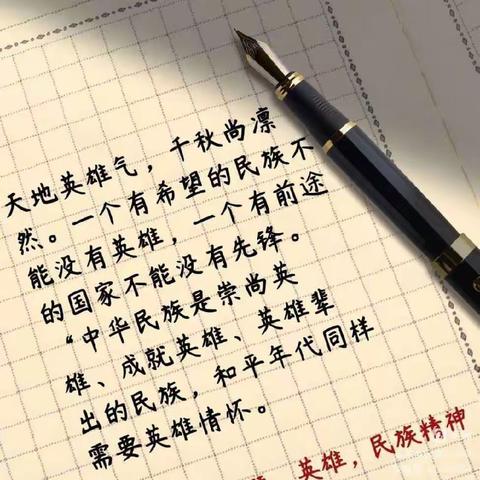 天地英雄气，千秋尚凛
然。一个有希望的民族不
能没有英雄，一个有前途
的国家不能没有先锋。
“中华民族是崇尚英
雄、成就英雄、英雄辈
出的民族，和平年代同样
需要英雄情怀。
英雄，民族精神